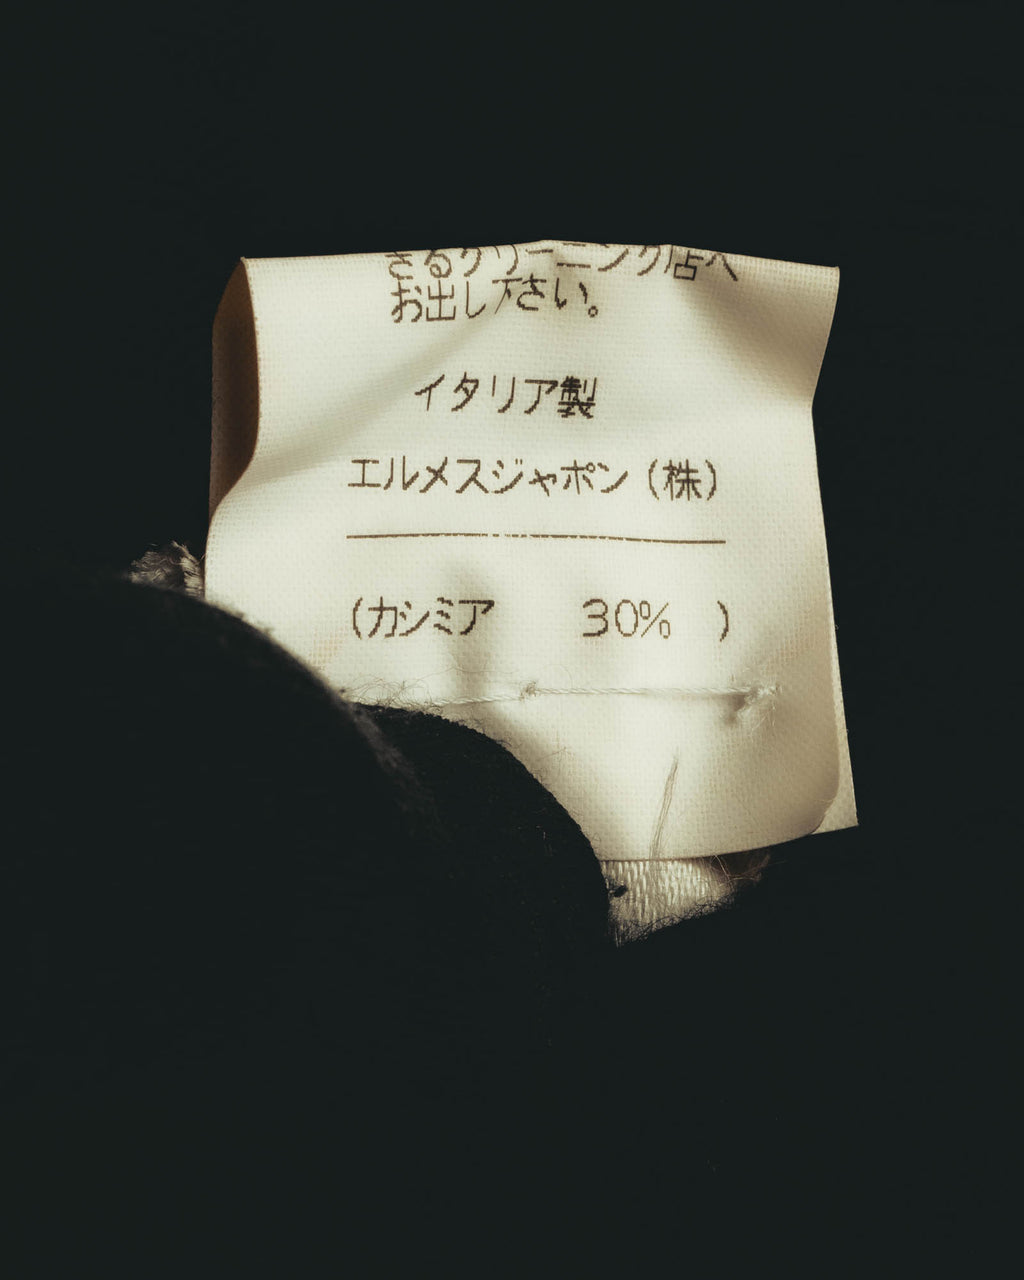 きるクリーニング店へ
お出し下さい。
イタリア製
エルメスジャポン(株)
(カシミア 30% )